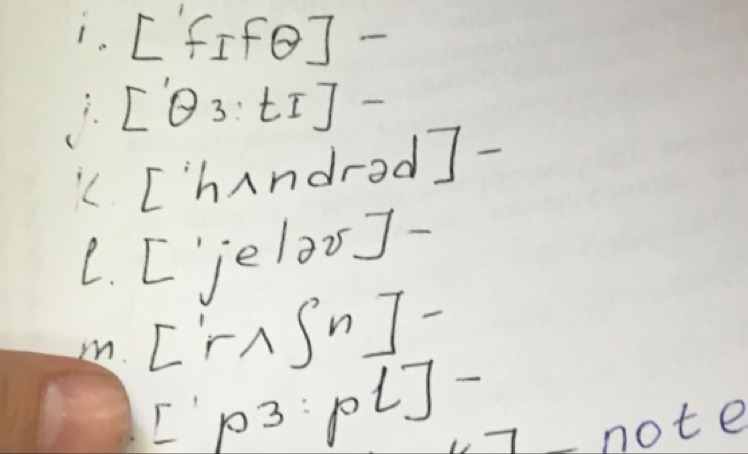 i. ['fɪfθ] -
j. ['θɜ:tɪ] -
k. ['hʌndrəd] -
l. ['jeləʊ] -
m. ['rʌʃn] -
['pɜ:pl] -
] - note